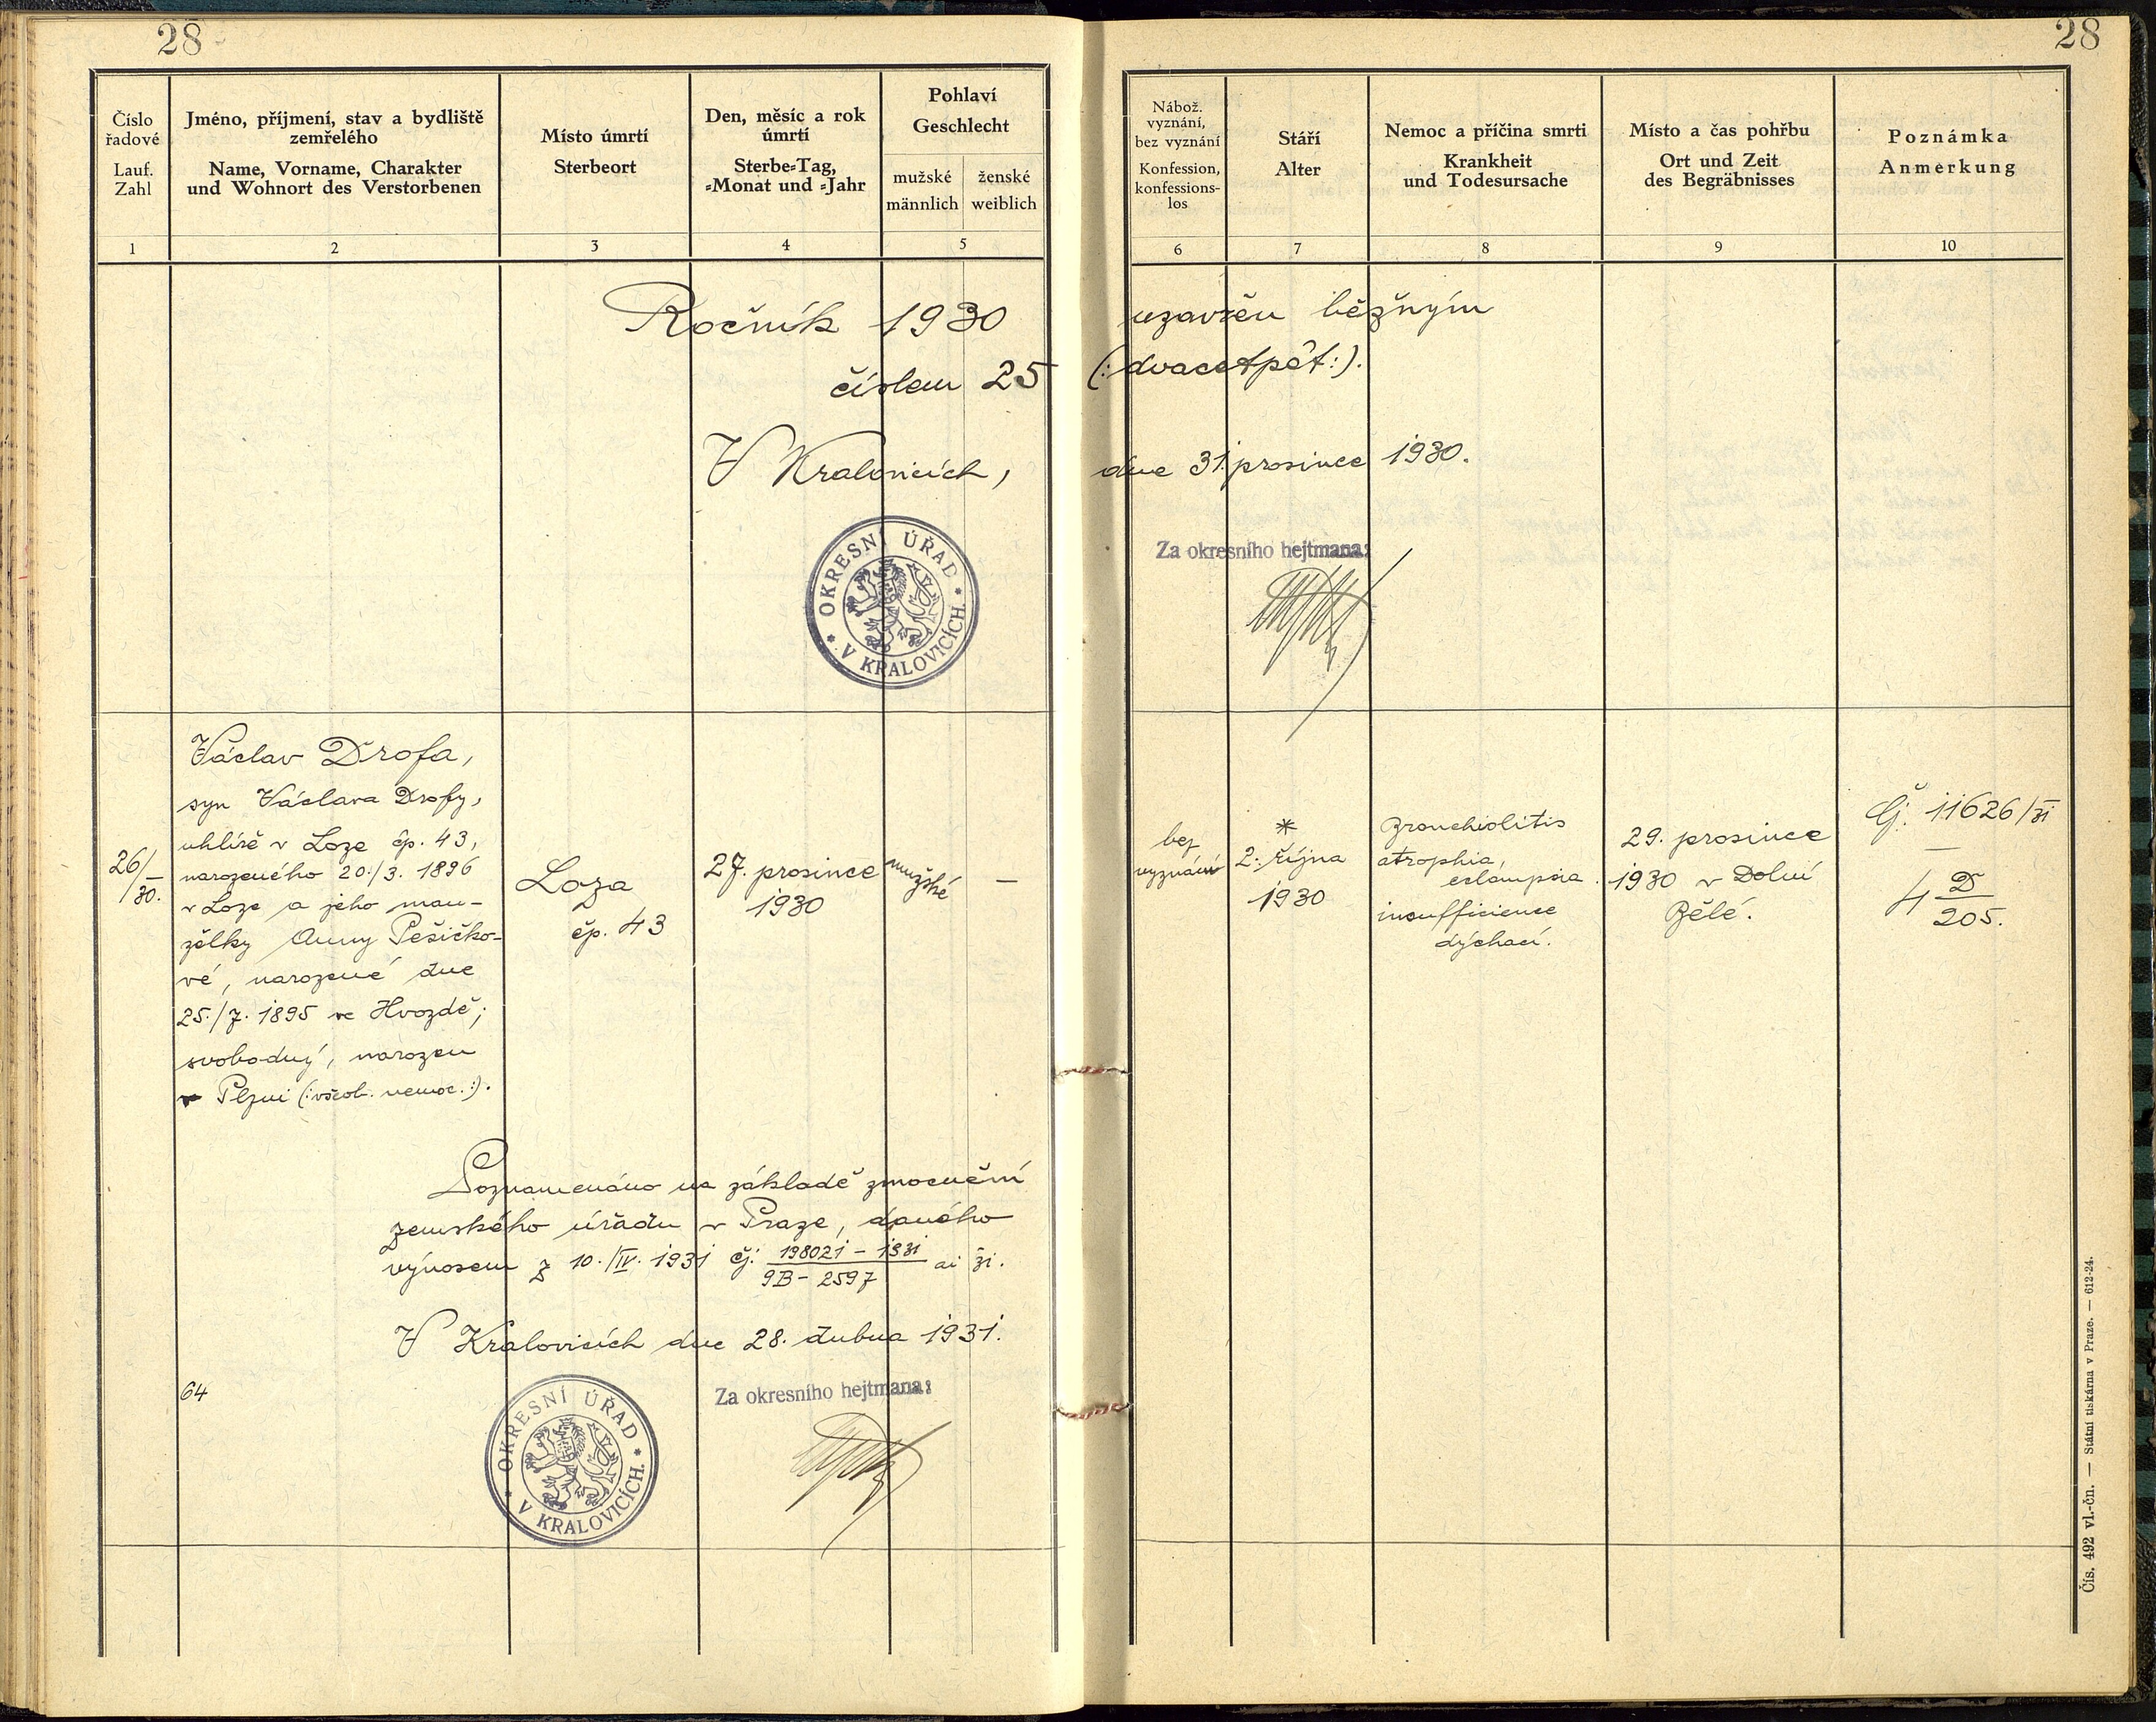 28
28
Číslo řadové
Lauf. Zahl
Jméno, příjmení, stav a bydliště
zemřelého
Name, Vorname, Charakter
und Wohnort des Verstorbenen
Místo úmrtí
Sterbeort
Den, měsíc a rok
úmrtí
Sterbe=Tag,
=Monat und =Jahr
Pohlaví
Geschlecht
mužské
männlich
ženské
weiblich
Nábož.
vyznání,
bez vyznání
Konfession,
konfessions-
los
Stáří
Alter
Nemoc a příčina smrti
Krankheit
und Todesursache
Místo a čas pohřbu
Ort und Zeit
des Begräbnisses
Poznámka
Anmerkung
1 2 3 4 5 6 7 8 9 10
Ročník 1930 uzavřen běžným
číslem 25 (: dvacetpět :).
V Kralovicích, dne 31. prosince 1930.
OKRESNÍ ÚŘAD * V KRALOVICÍCH. *
Za okresního hejtmana:
26/
/30.
Václav Drofa,
syn Václava Drofy,
uhlíře v Loze čp. 43,
narozeného 20./3. 1896
v Loze a jeho man-
želky Anny Pešičko-
vé, narozené dne
25./7. 1895 ve Hvozdě;
svobodný, narozen
v Plzni (: všeob. nemoc. :).
Loza
čp. 43
27. prosince
1930
mužské
—
bez
vyznání
*
2. října
1930
Bronchiolitis
atrophia,
eclampsia
insufficience
dýchací.
29. prosince
1930 v Dolní
Bělé.
Čj. 11626/31
—
4 D/205.
Poznamenáno na základě zmocnění
zemského úřadu v Praze, daného
výnosem z 10./IV. 1931 čj. 198021 - 1931 / 9B - 2597 ai 31.
V Kralovicích dne 28. dubna 1931.
64
OKRESNÍ ÚŘAD * V KRALOVICÍCH. *
Za okresního hejtmana:
Čís. 492 vl.-čn. — Státní tiskárna v Praze. — 612-24.